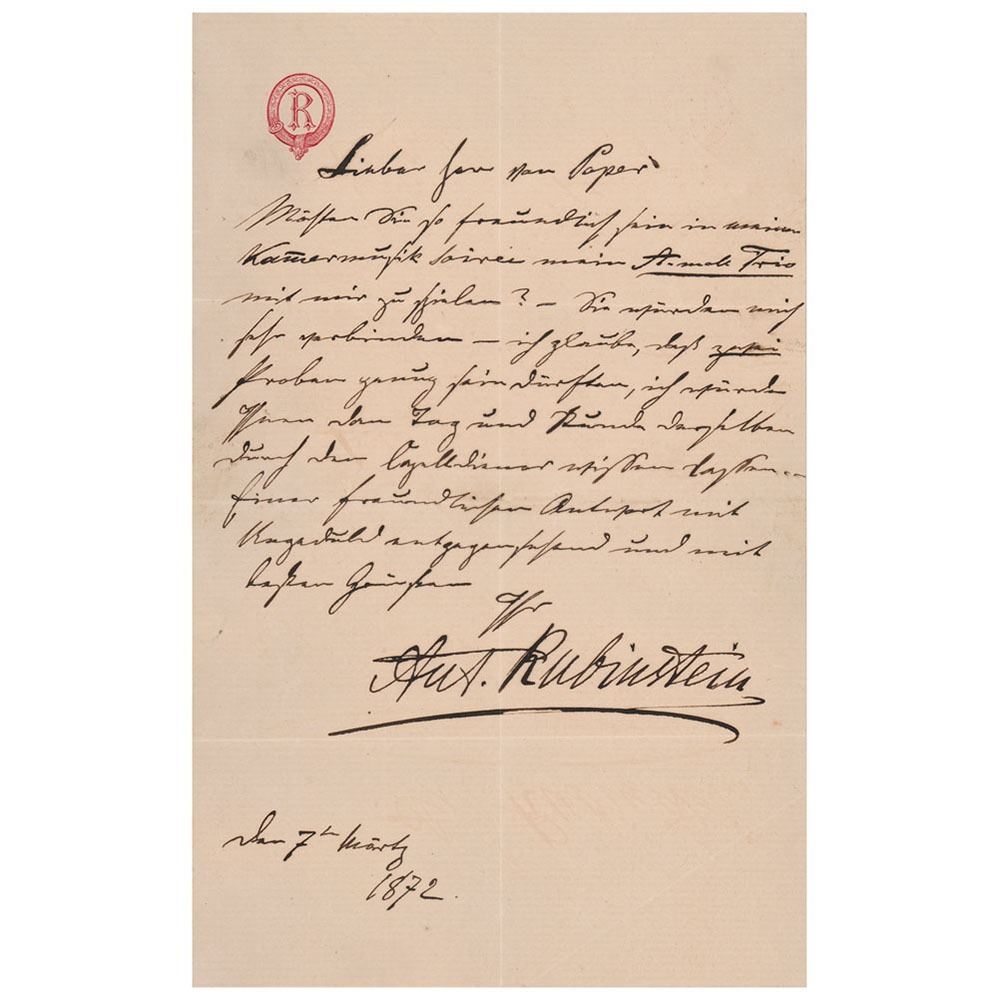 R
Lieber Herr von Poper
Möchten Sie so freundlich sein in meiner
Kam̅ermusik Soirée mein A-moll Trio
mit mir zu spielen? – Sie würden mich
sehr verbinden – ich glaube, daß zwei
Proben genug sein dürften, ich würde
Ihnen den Tag und Stunde derselben
durch den Capelldiener wissen lassen –
Einer freundlichen Antwort mit
Ungeduld entgegensehend und mit
besten Grüßen
Ihr
Ant. Rubinstein
den 7ten Märtz
1872.